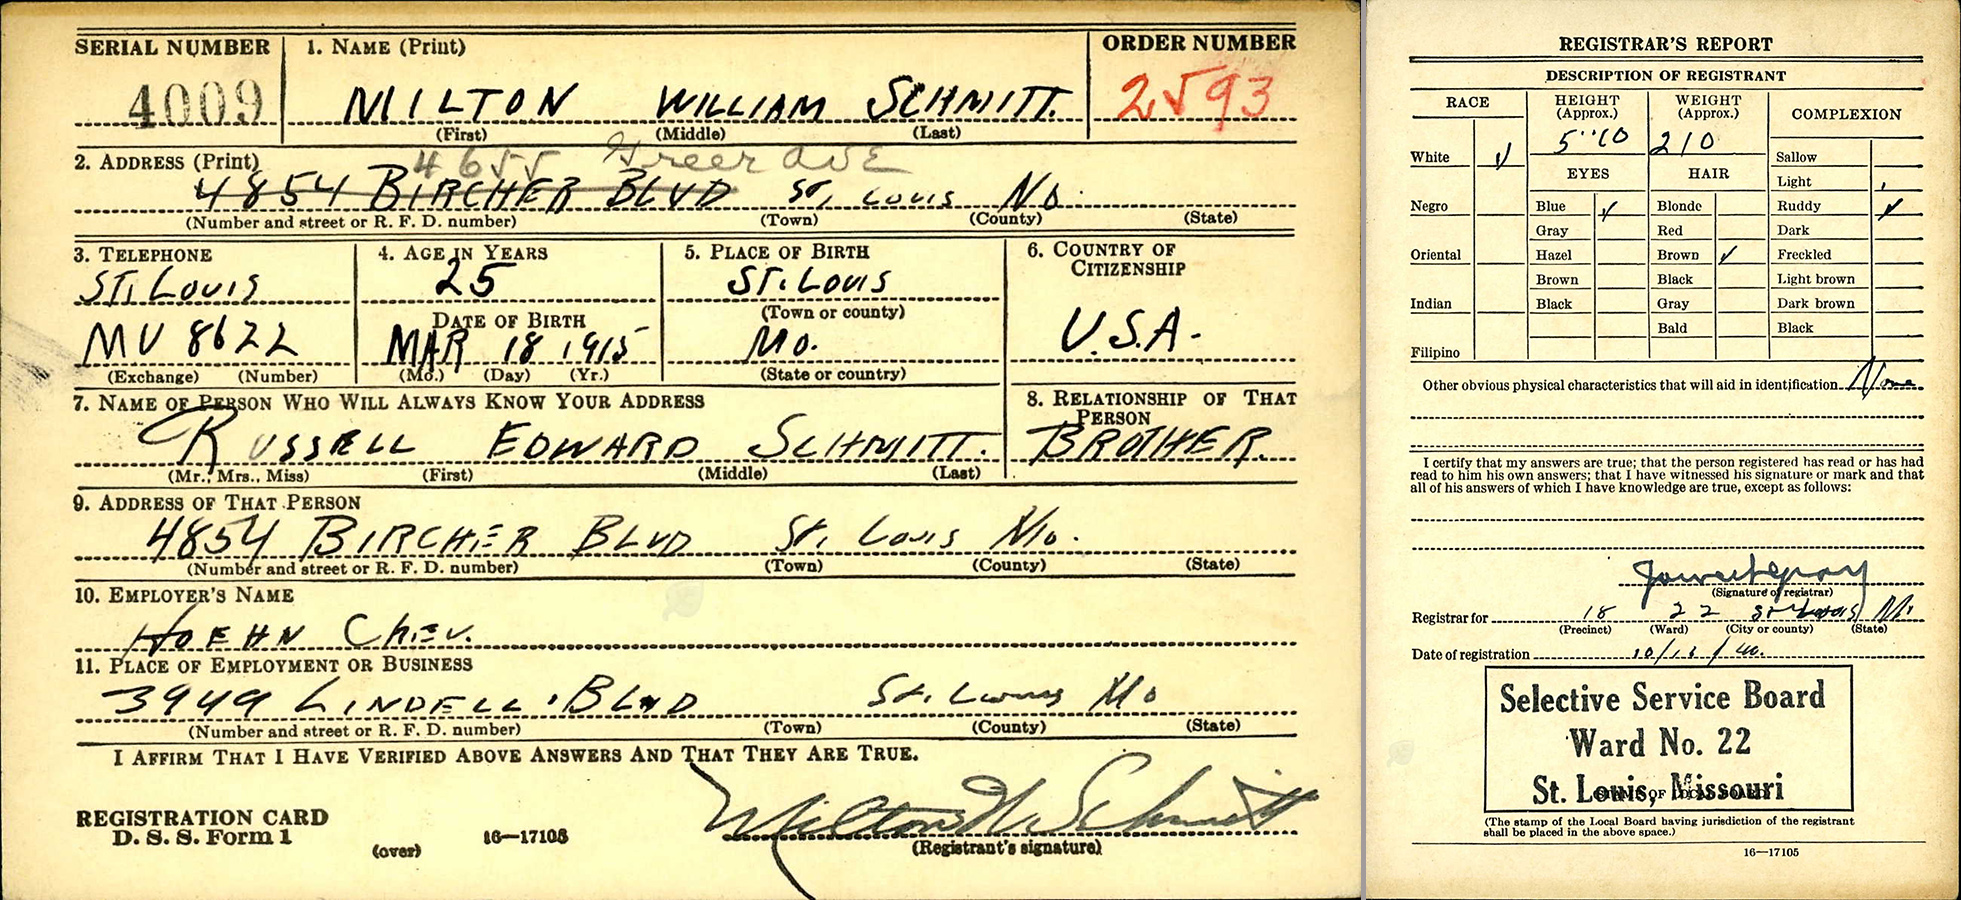 SERIAL NUMBER 1. NAME (Print) ORDER NUMBER
4009 MILTON WILLIAM SCHMITT. 2593
(First) (Middle) (Last)
2. ADDRESS (Print) 4655 Greer AVE
4854 BIRCHER BLVD ST. LOUIS MO.
(Number and street or R. F. D. number) (Town) (County) (State)
3. TELEPHONE 4. AGE IN YEARS 5. PLACE OF BIRTH 6. COUNTRY OF CITIZENSHIP
ST. LOUIS 25 ST. LOUIS
DATE OF BIRTH (Town or county)
MU 8622 MAR 18 1915 MO. U.S.A.
(Exchange) (Number) (Mo.) (Day) (Yr.) (State or country)
7. NAME OF PERSON WHO WILL ALWAYS KNOW YOUR ADDRESS 8. RELATIONSHIP OF THAT PERSON
RUSSELL EDWARD SCHMITT. BROTHER.
(Mr., Mrs., Miss) (First) (Middle) (Last)
9. ADDRESS OF THAT PERSON
4854 BIRCHER BLVD ST. LOUIS MO.
(Number and street or R. F. D. number) (Town) (County) (State)
10. EMPLOYER'S NAME
HOEHN CHEV.
11. PLACE OF EMPLOYMENT OR BUSINESS
3949 LINDELL BLVD ST. Louis Mo
(Number and street or R. F. D. number) (Town) (County) (State)
I AFFIRM THAT I HAVE VERIFIED ABOVE ANSWERS AND THAT THEY ARE TRUE.
REGISTRATION CARD
D. S. S. Form 1 (over) 16—17105
Milton W. Schmitt
(Registrant's signature)
REGISTRAR'S REPORT
DESCRIPTION OF REGISTRANT
RACE HEIGHT (Approx.) WEIGHT (Approx.) COMPLEXION
5"10 210
White ✓ Sallow
EYES HAIR Light
Negro Blue ✓ Blonde Ruddy ✓
Gray Red Dark
Oriental Hazel Brown ✓ Freckled
Brown Black Light brown
Indian Black Gray Dark brown
Bald Black
Filipino
Other obvious physical characteristics that will aid in identification None
I certify that my answers are true; that the person registered has read or has had
read to him his own answers; that I have witnessed his signature or mark and that
all of his answers of which I have knowledge are true, except as follows:
(Signature of registrar)
Registrar for 18 22 St Louis Mo
(Precinct) (Ward) (City or county) (State)
Date of registration
Selective Service Board
Ward No. 22
St. Louis, Missouri
(The stamp of the Local Board having jurisdiction of the registrant
shall be placed in the above space.)
16—17105